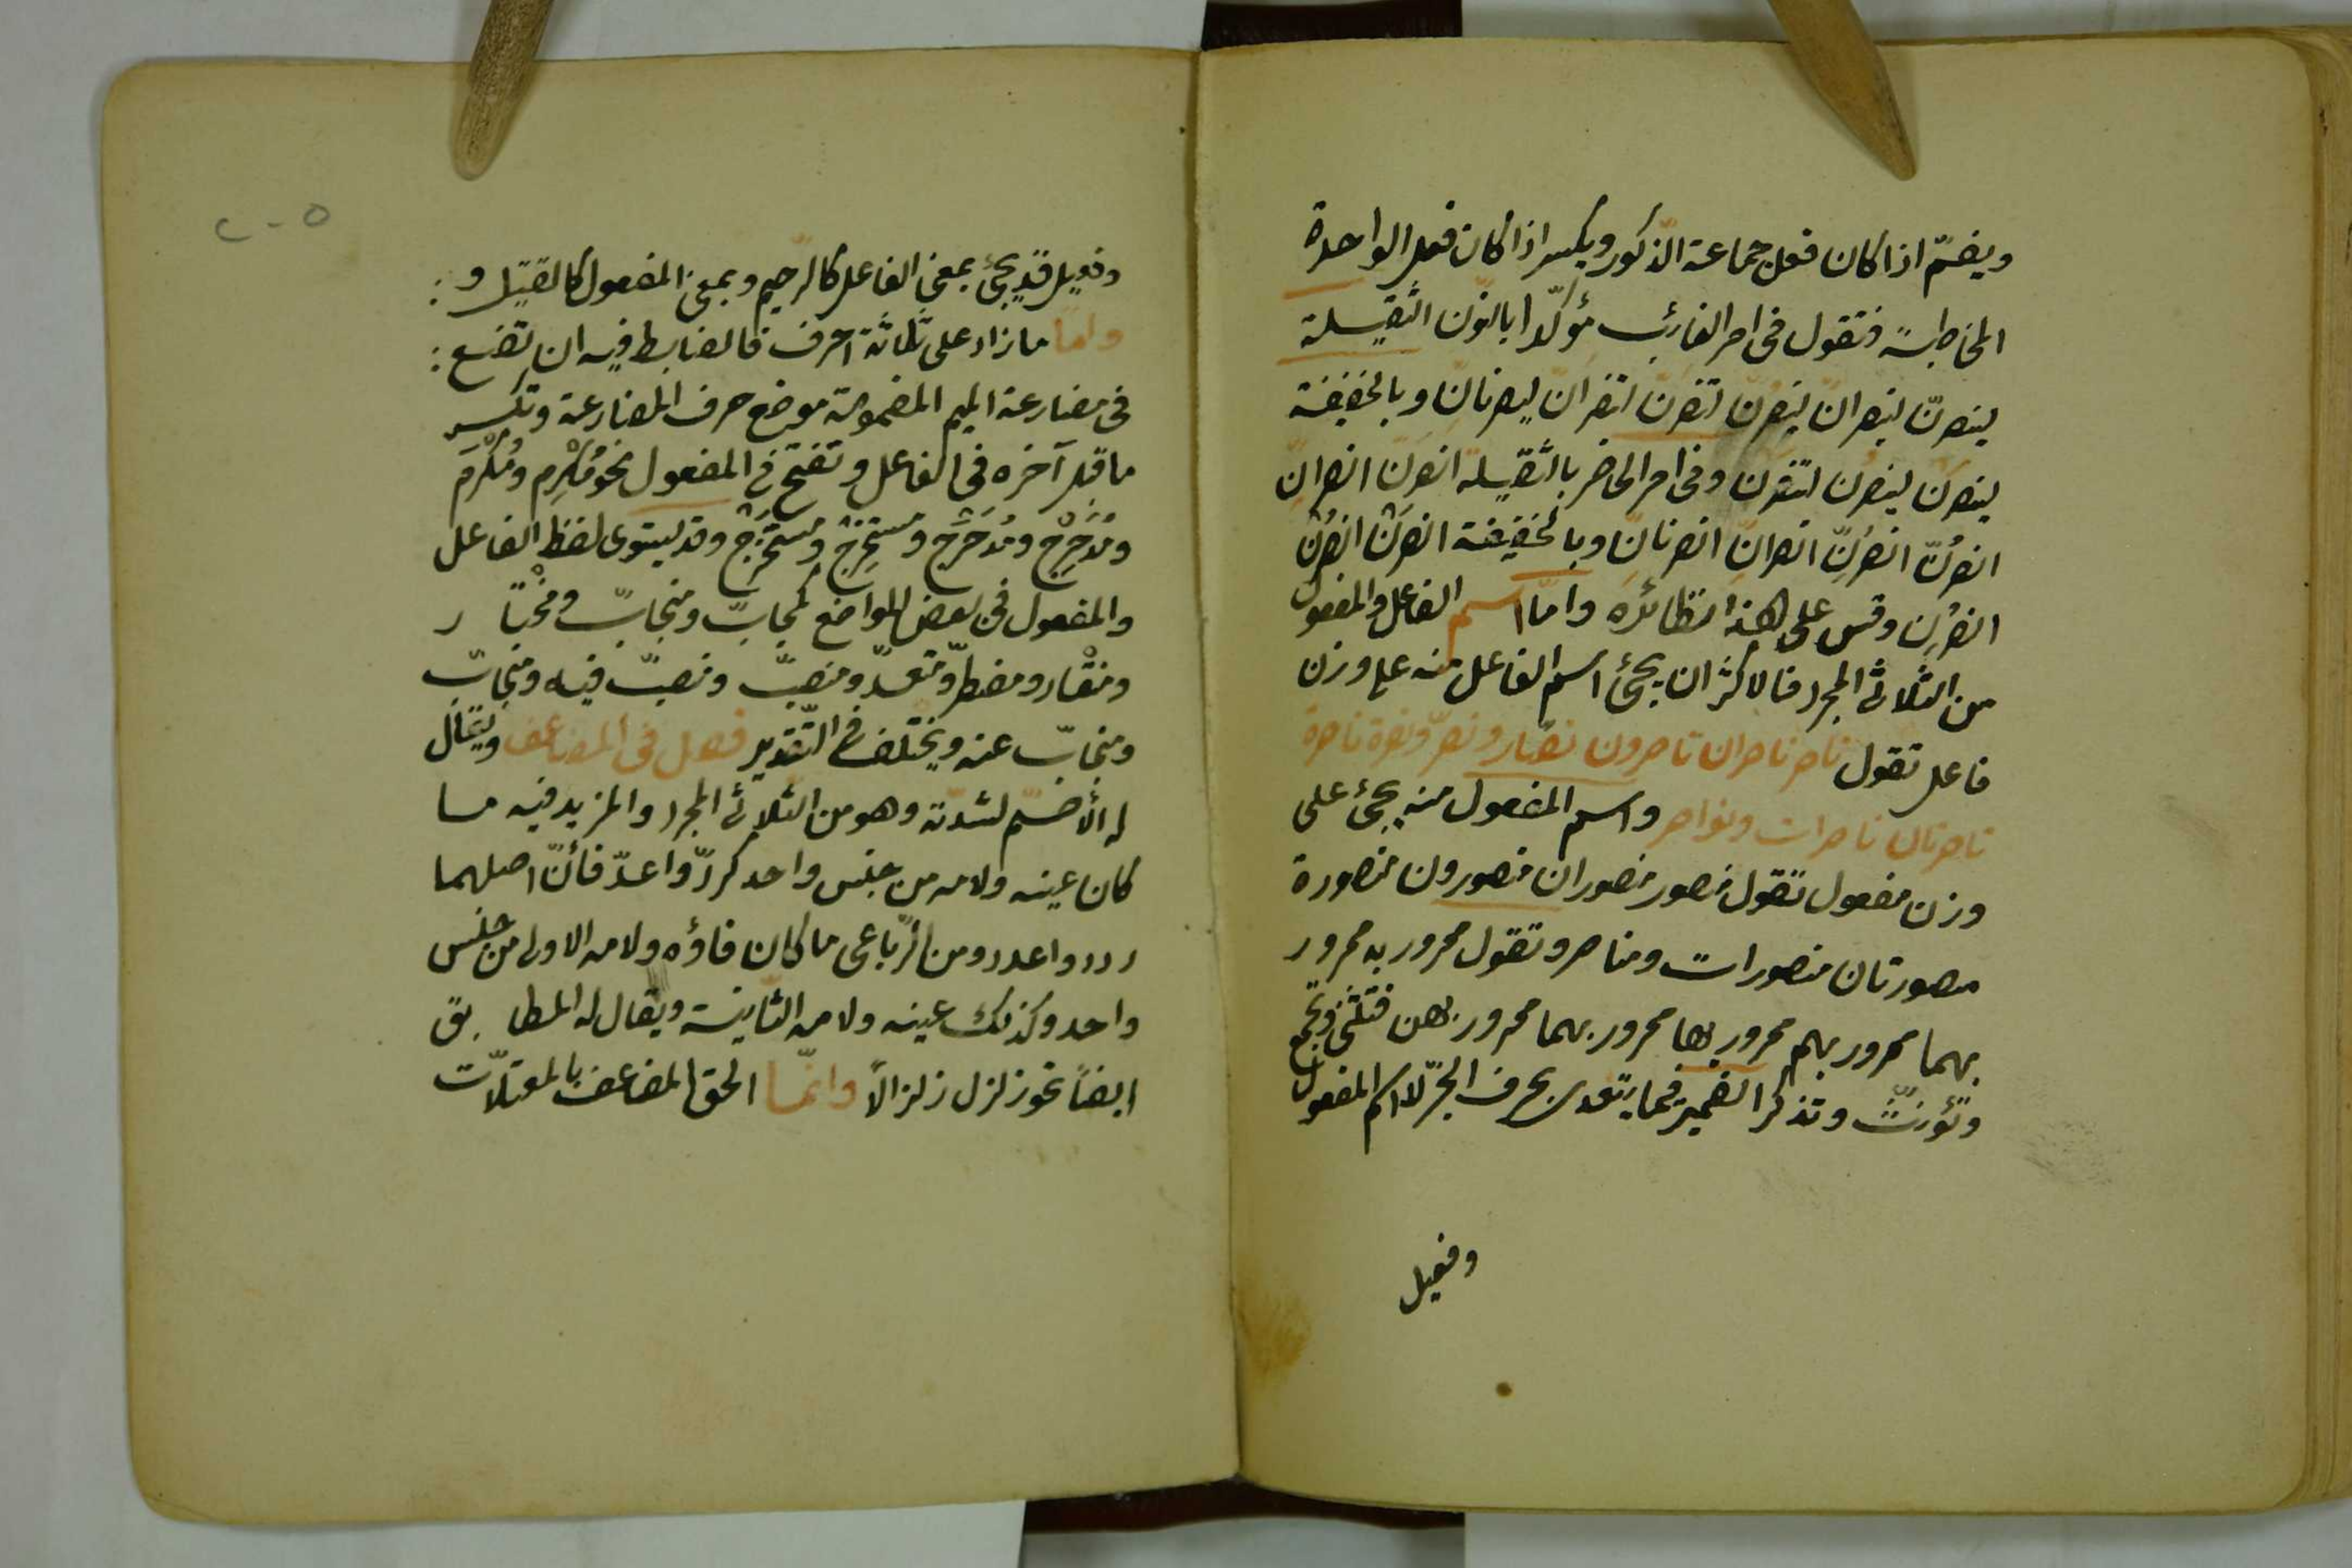 ويضمّ اذا كان فعل جماعة الذّكور ويكسر اذا كان فعل الواحدة
المخاطبة فتقول فى امر الغائب مؤكّدا بالنّون الثّقيلة
لينصرنّ لينصرانّ لينصرنّ لتنصرنّ لتنصرانّ لينصرنانّ وبالخفيفة
لينصرن لينصرن لتنصرن وفى امر الحاضر بالثّقيلة انصرنّ انصرانّ
انصرُنّ انصرِنّ انصرانّ انصرنانّ وبالخفيفة انصرَنْ انصرُنْ
انصرِن وقس على هذا نظائره وامّا اسم الفاعل والمفعول
من الثلاثى المجرد فالاكثر ان يجئ اسم الفاعل منه على وزن
فاعل تقول ناصر ناصران ناصرون نصّار ونصّر ونصرة ناصرة
ناصرتان ناصرات ونواصر واسم المفعول منه يجئ على
وزن مفعول تقول منصور منصوران منصورون منصورة
منصورتان منصورات ومناصر وتقول ممرور به ممرور
بهما ممرور بهم ممرور بها ممرور بهما ممرور بهن فتثنّى وتجمع
وتؤنّث وتذكر الضمير فيما يتعدى بحرف الجرّ لا اسم المفعول
وفعيل
٢٠٥
وفعيل قد يجئ بمعنى الفاعل كالرّحيم وبمعنى المفعول كالقتيل و:
وامّا ما زاد على ثلٰثة احرف فالضابط فيه ان تضع:
فى مضارعة الميم المضمومة موضع حرف المضارعة وتكسر
ما قبل آخره فى الفاعل وتفتح فى المفعول نحو مُكْرِم ومُكْرَم
ومُدَحْرِج ومُدَحْرَج ومستخرِج ومستخرَج وقد يستوى لفظ الفاعل
والمفعول فى بعض المواضع كمحابّ ومتحابّ ومختا ر
ومنقاد ومضطرّ ومعتدّ ومنصبّ ومنصبّ فيه ومنجابّ
ومنجابّ عنه ويختلف فى التّقدير فصل فى المضاعف ويقال
له الأصمّ لشدّته وهو من الثّلاثى المجرد والمزيد فيه مـا
كان عينه ولامه من جنس واحد كردّ واعدّ فأنّ اصلهما
ردد واعدد ومن الرّباعى ما كان فاؤه ولامه الاولى من جنس
واحد وكذلك عينه ولامه الثّانية ويقال له المطا بق
ايضاً نحو زلزل زلزالاً وانّما الحق المضاعف بالمعتلاّت